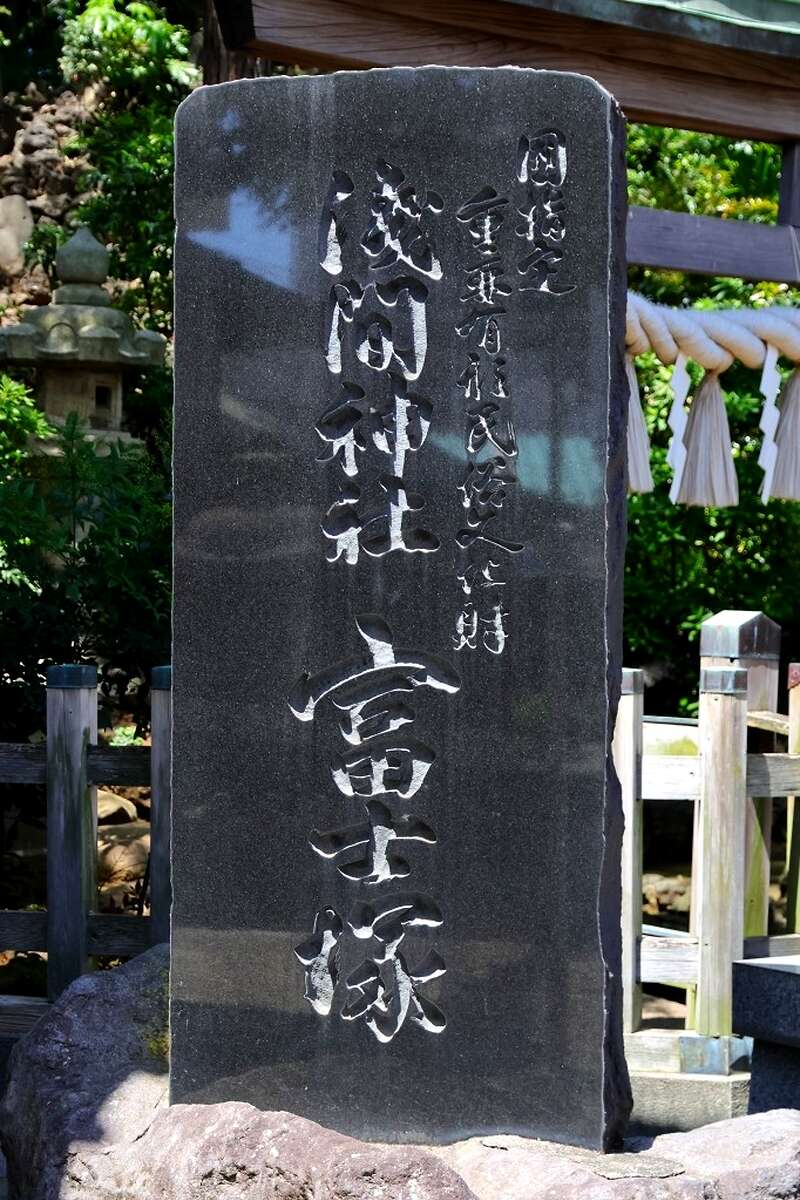 國指定
重要有形民俗文化財
淺間神社 富士塚